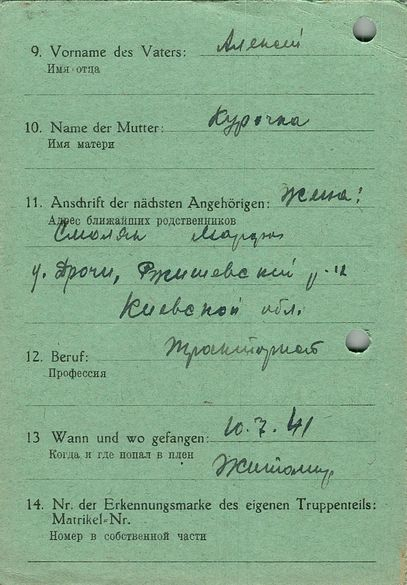 9. Vorname des Vaters: Алексей
Имя отца
10. Name der Mutter: Курочка
Имя матери
11. Anschrift der nächsten Angehörigen: Жена:
Адрес ближайших родственников
Смоляк
Ржищевский р-н
Киевской обл.
12. Beruf: Тракторист
Профессия
13 Wann und wo gefangen: 10.7.41
Когда и где попал в плен
Житомир
14. Nr. der Erkennungsmarke des eigenen Truppenteils:
Matrikel-Nr.
Номер в собственной части